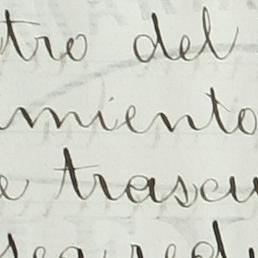 tro del
miento
e trascu